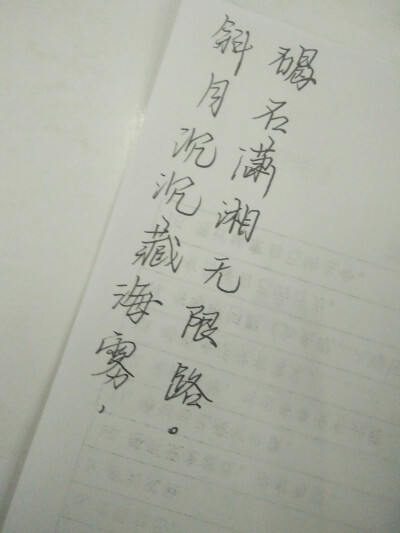 斜月沉沉藏海雾，
碣石潇湘无限路。